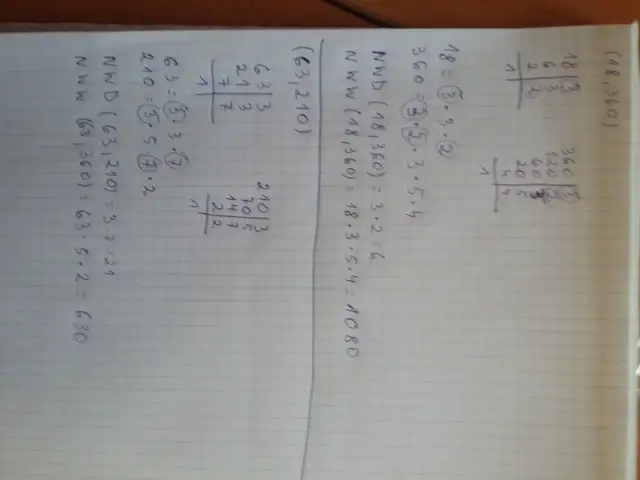 (18,360)
18 | 3    360 | 3
6 | 3    120 | 2
2 | 2    60 | 3
1 |    20 | 5
4 | 4
1 |
18 = 3 · 3 · 2
360 = 3 · 2 · 3 · 5 · 4
NWD (18,360) = 3 · 2 = 6
NWW (18,360) = 18 · 3 · 5 · 4 = 1080
(63,210)
63 | 3    210 | 3
21 | 3    70 | 5
7 | 7    14 | 7
1 |    2 | 2
1 |
63 = 3 · 3 · 7
210 = 3 · 5 · 7 · 2
NWD (63,210) = 3 · 7 = 21
NWW (63,360) = 63 · 5 · 2 = 630